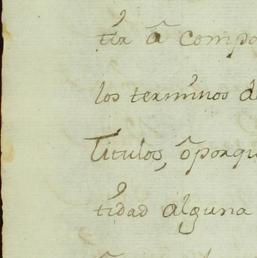 tir â compo
los terminos d
Titulos, ô porqu
tidad alguna